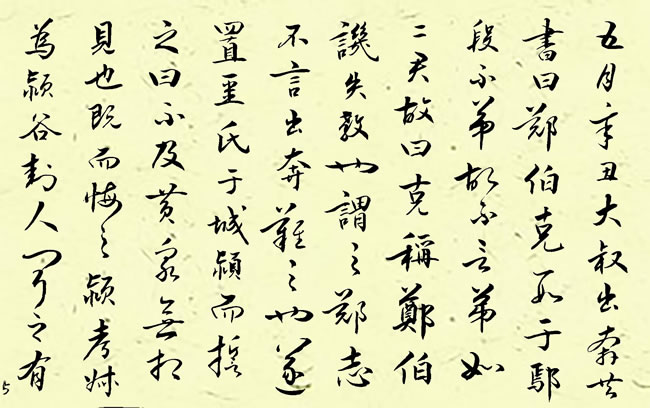 五月辛丑大叔出奔共
書曰鄭伯克段于鄢
段不弟故不言弟如
二君故曰克稱鄭伯
譏失教也謂之鄭志
不言出奔難之也遂
置姜氏于城潁而誓
之曰不及黃泉無相
見也既而悔之潁考叔
為潁谷封人聞之有
5